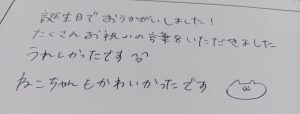 誕生日でおうかがいしました!
たくさんお祝いの言葉をいただきました
うれしかったです
ねこちゃんもかわいかったです